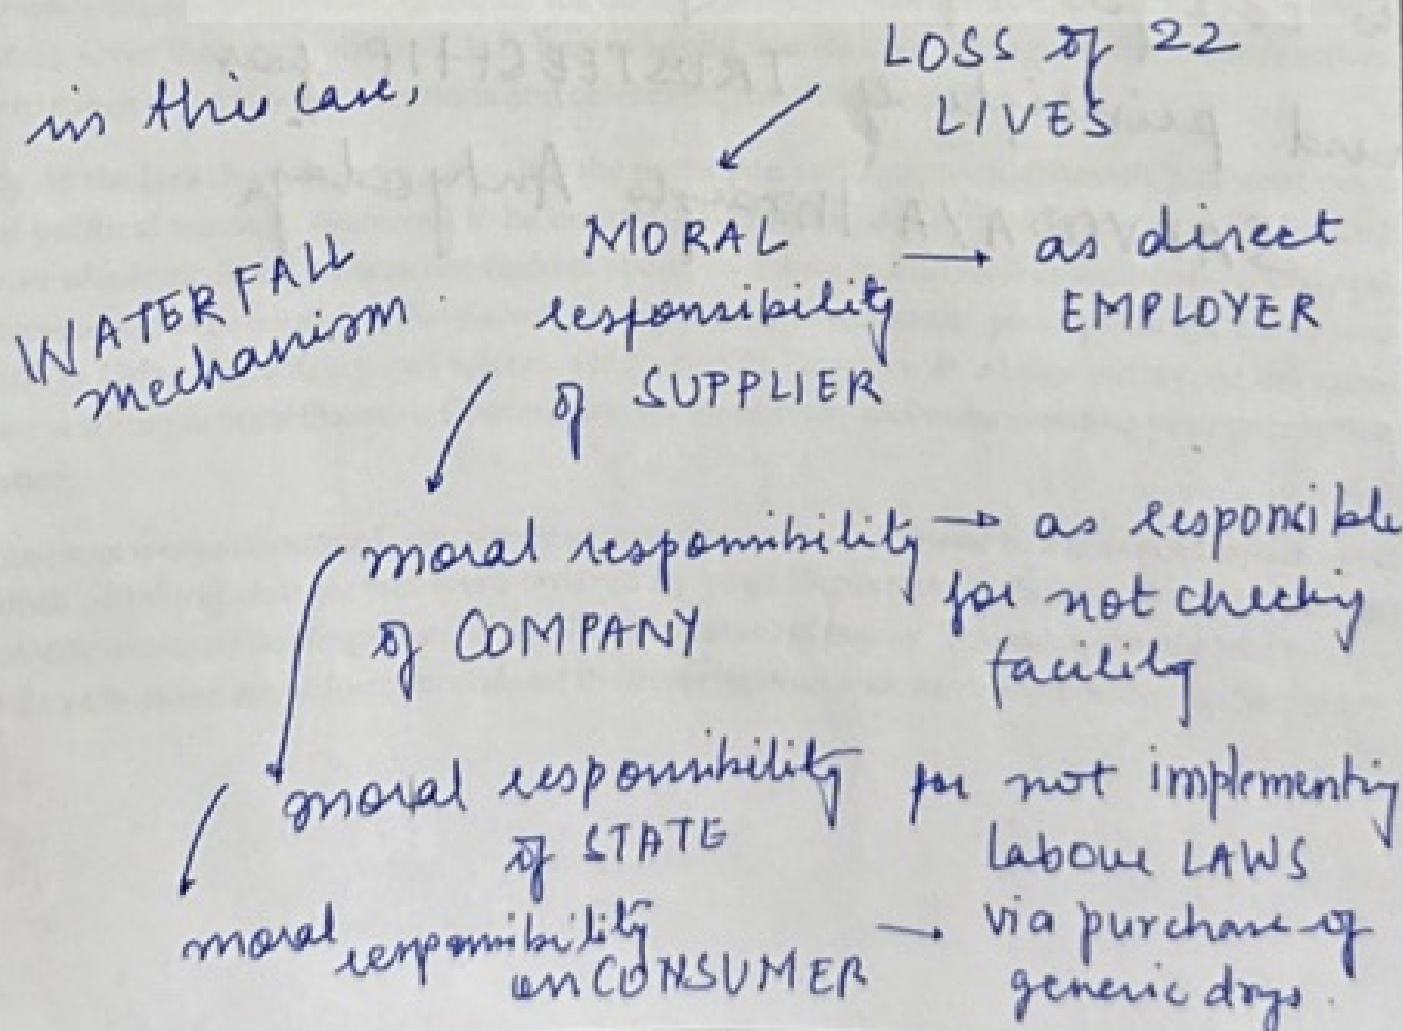 in this case,
LOSS of 22
LIVES
WATERFALL
mechanism
MORAL
responsibility
of SUPPLIER
as direct
EMPLOYER
moral responsibility
of COMPANY
as responsible
for not checking
facility
moral responsibility
of STATE
for not implementing
labour LAWS
moral responsibility
on CONSUMER
via purchase of
generic drugs.